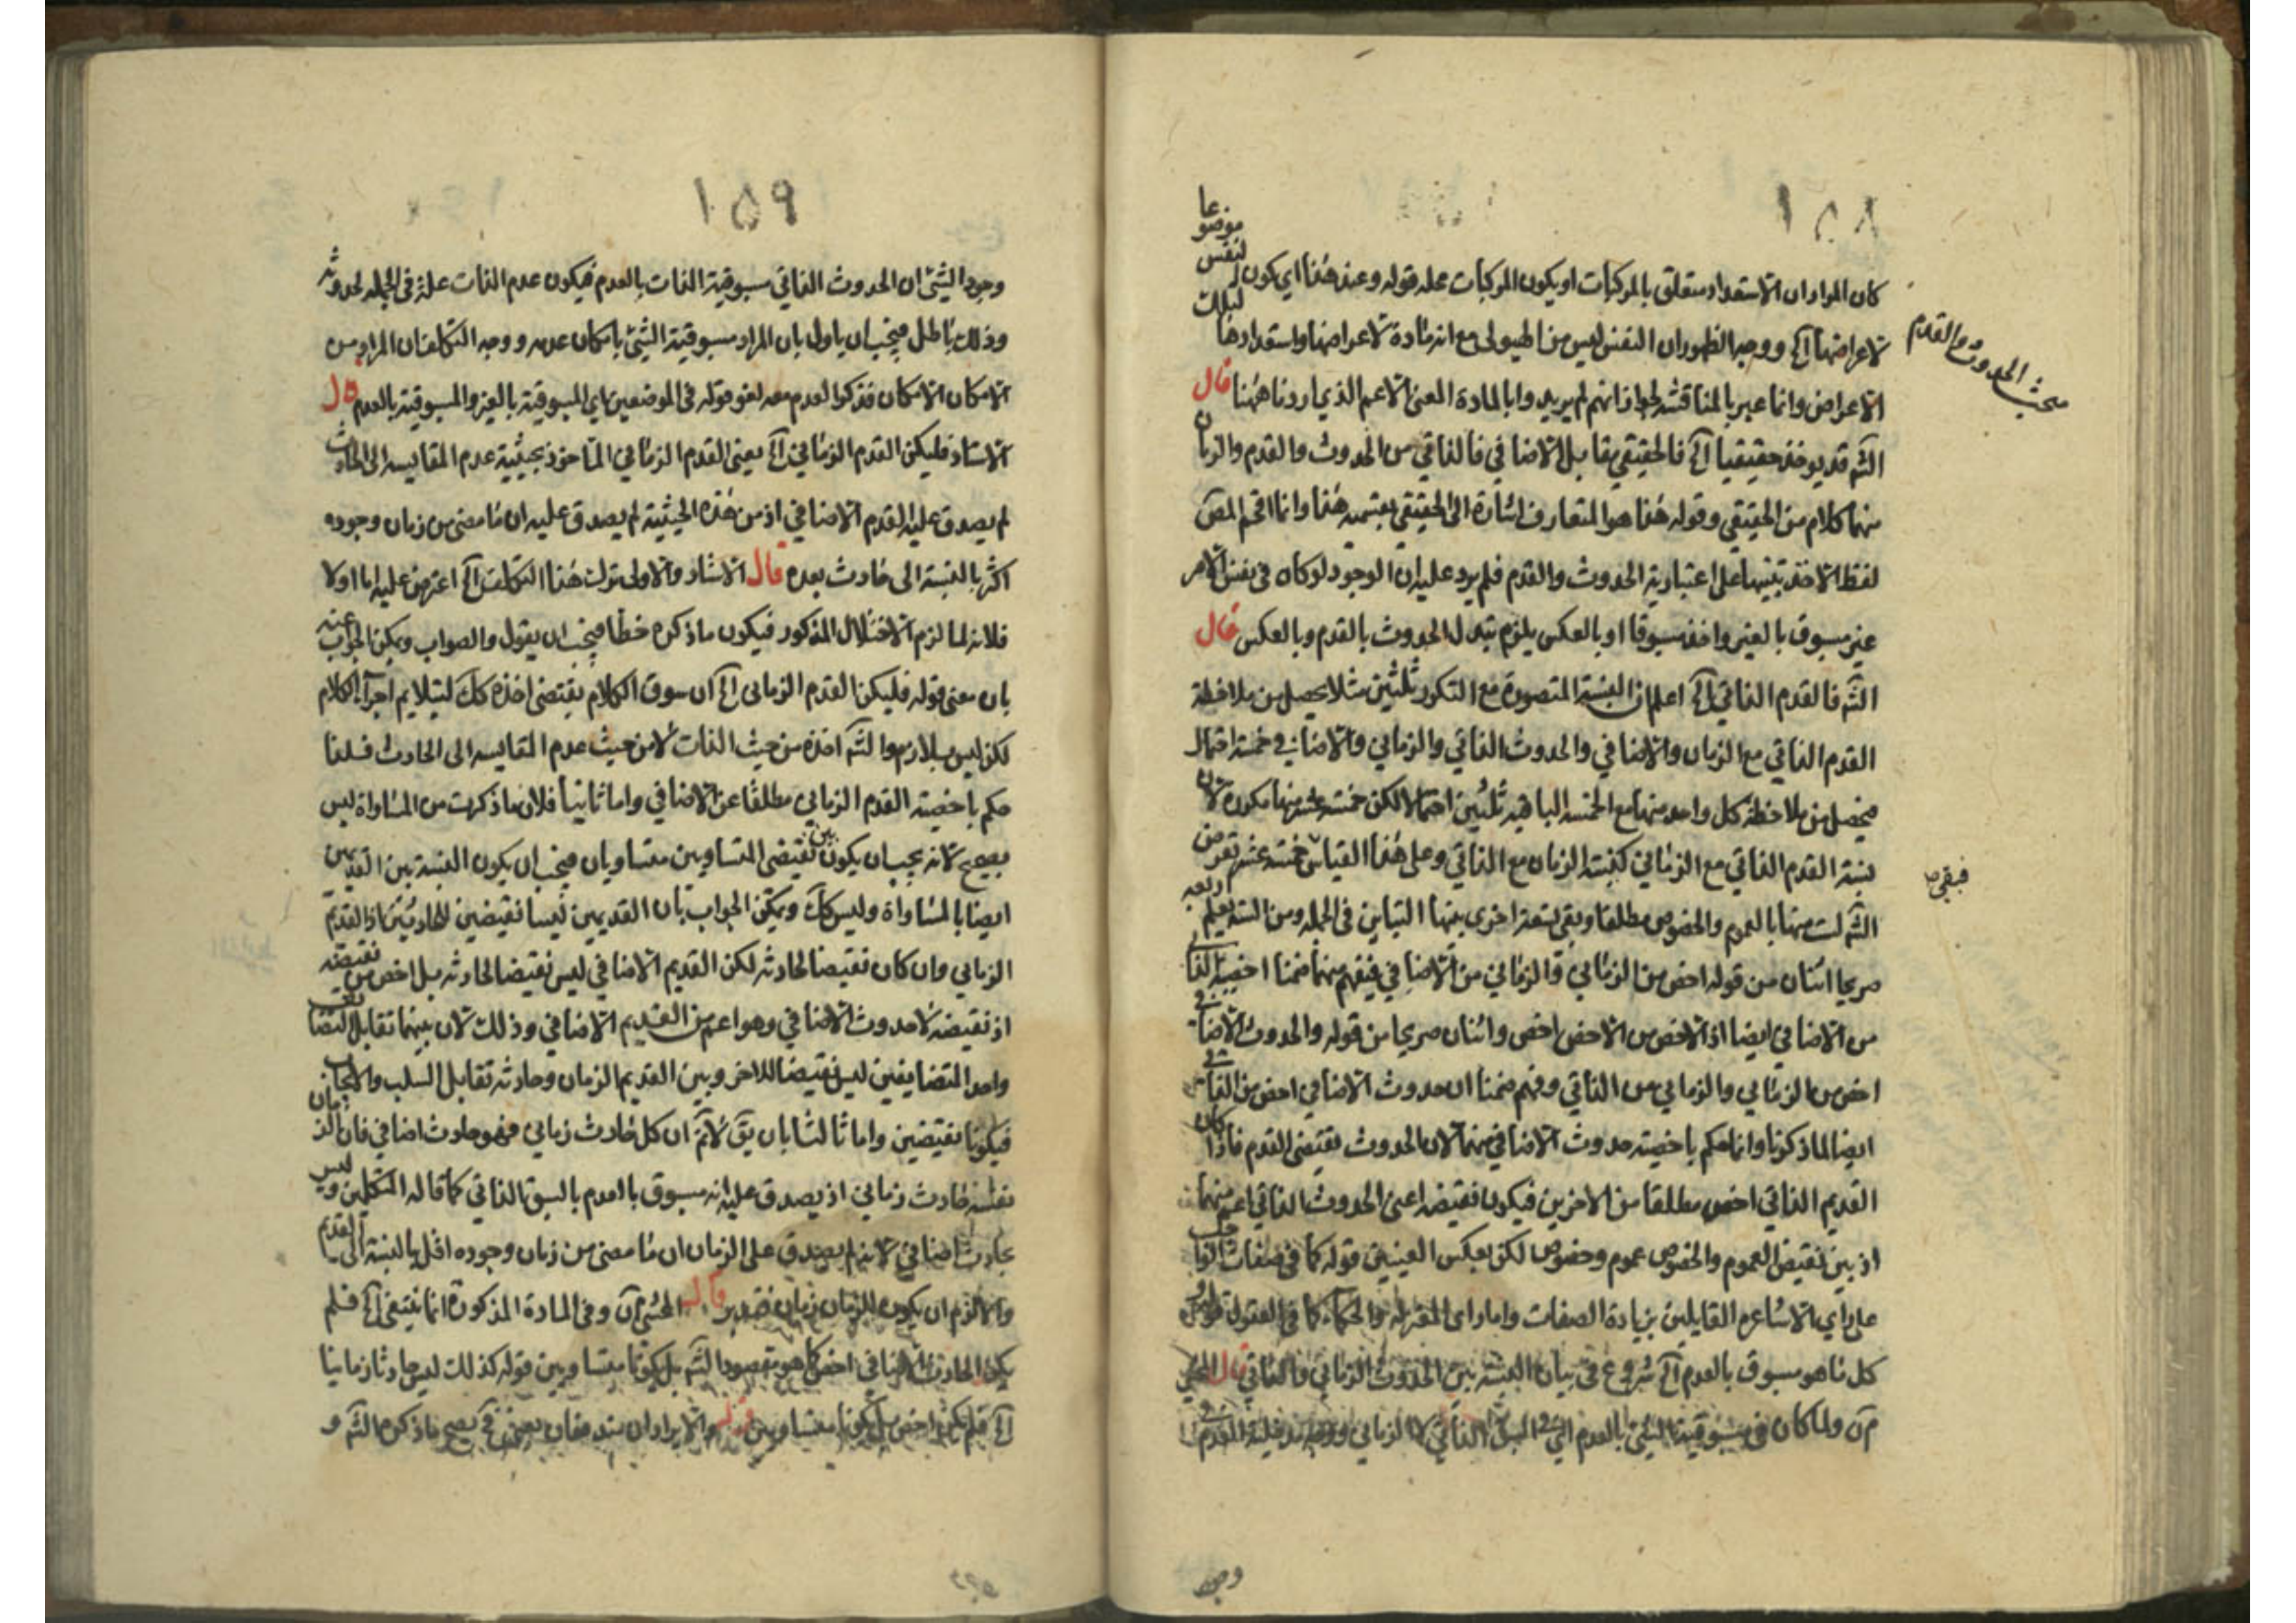 ١٥٨
كان المراد ان الاستعداد متعلق بالمركبات او يكون المركبات محله قوله وعند هذا اي يكون لنفس موضوعا
لاعراضها آه ووجه الظهور ان النفس ليس من الهيولى مع انه مادة لاعراضها واستعدادها لتلك
الاعراض وانما عبر بالمناقشة لجواز انهم لم يريدوا بالمادة المعنى الاعم الذي اردناه هنا قال
الش قد يوخذ حقيقيا آه فالحقيقي يقابل الاضافي فالذاتي من الحدوث والقدم والزمان
منهما كلام من الحقيقي وقوله هذا هو المتعارف اشارة الى الحقيقي بقسميه هذا وانما اقحم المص
لفظ الاخذ تنبيها على اعتبارية الحدوث والقدم فلم يرد عليه ان الوجود لو كان في نفس الامر
غير مسبوق بالغير واخذ مسبوقا او بالعكس يلزم تبدل الحدوث بالقدم وبالعكس قال
الش فالقدم الذاتي آه اعلم ان النسبة المتصورة مع التكرر ثلثين مثلا يحصل من ملاحظة
القدم الذاتي مع الزمان والاضافي والحدوث الذاتي والزماني والاضافي خمسة احتمال
فيحصل من ملاحظة كل واحد منها مع الخمسة الباقية ثلثين احتمالا لكن خمسة عشر منها مكررة لان
نسبة القدم الذاتي مع الزماني كنسبة الزمان مع الذاتي وعلى هذا القياس خمسة عشر تعرض
الش لست منها بالعموم والخصوص مطلقا وبقى تسعة اخرى بينها التباين في الجملة ومن الستة يعلم اربعة
صريحا اثنان من قوله اخص من الزماني والزماني من الاضافي فيفهم منهما ضمنا اخصية الذا
من الاضافي ايضا اذ الاخص من الاخص اخص واثنان صريحا من قوله والحدوث الاضافي
اخص من الزماني والزماني من الذاتي وفهم ضمنا ان حدوث الاضافي اخص من الذاتي
ايضا لما ذكرنا وانما حكم باخصية حدوث الاضافي منهما لان الحدوث نقيض القدم فاذا كان
القديم الذاتي اخص مطلقا من الاخرين فيكون نقيضه اعنى الحدوث الذاتي اعم منهما
اذ بين نقيض العموم والخصوص عموم وخصوص لكن بعكس العينين قوله كما في صفات الواجب
على رأي الاشاعرة القايلين بزيادة الصفات واما رأى المعتزلة والحكماء كما في العقول قوله
كل ما هو مسبوق بالعدم آه شروع في بيان النسبة بين الحدوث الزماني والذاتي قال المحشي
م ن ولما كان في مسبوقية الشئ بالعدم اي السبق الذاتي لا الزماني ووجه
وجود
مبحث الحدوث والقدم
فبقى
١٥٩
وجود الشئ ان الحدوث الذاتي مسبوقية الذات بالعدم فيكون عدم الذات علة في الجملة لحدوثه
وذلك باطل فيجب ان ياول بان المراد مسبوقية الشئ بامكان عدمه ووجه التكلف ان المراد من
الامكان الامكان فذكر العدم معه لغو قوله في الموضعين اي المسبوقية بالغير والمسبوقية بالعدم قال
الاستاد فليكن القدم الزماني آه يعنى القدم الزماني الماخوذ بحيثية عدم المقايسه الى الحادث
لم يصدق عليه القدم الاضافي اذ من هذه الحيثية لم يصدق عليه ان ما مضى من زمان وجوده
اكثر بالنسبة الى حادث بعده قال الاستاد والاولى ترك هذا التكلف آه اعترض عليه اما اولا
فلانه لما لزم الاختلال المذكور فيكون ما ذكره خطا فيجب ان يقول والصواب ويمكن الجواب عنه
بان معنى قوله فليكن القدم الزماني آه ان سوق الكلام يقتضى اخذه كك ليتلايم اجزاء الكلام
لكن ليس بلازم والش اخذه من حيث الذات لا من حيث عدم المقايسه الى الحادث فلذا
حكم باخصية القدم الزماني مطلقا عن الاضافي واما ثانيا فلان ما ذكرت من المساواة ليس
بصحيح لانه يجب ان يكون بين نقيضى المتساويين متساويان فيجب ان يكون النسبة بين القديمين
ايضا بالمساواة وليس كك ويمكن الجواب بان القديمين ليسا نقيضين للحادثين اذ القديم
الزماني وان كان نقيضا لحادثه لكن القديم الاضافي ليس نقيضا لحادثه بل اخص من نقيضه
اذ نقيضه لا حدوث الاضافي وهو اعم من القديم الاضافي وذلك لان بينهما تقابل التضايف
واحد المتضايفين ليس نقيضا للاخر وبين القديم الزمان وحادثه تقابل السلب والايجاب
فيكونا نقيضين واما ثالثا بان يق لانم ان كل حادث زماني فهو حادث اضافي فان الزمان
نفسه حادث زماني اذ يصدق عليه انه مسبوق بالعدم بالسبق الذاتي كما قاله المتكلمين وليس
بحادث اضافي لانه لم يصدق على الزمان ان ما مضى من زمان وجوده اقل بالنسبة الى القديم
والا لزم ان يكون للزمان زمان فتدبر قال المحشي م ن وفي المادة المذكورة انما ينتفى آه فلم
يكن الحادث الاضافي اخص كما هو مقصود الش بل يكونا متساويين قوله كذلك ليس حادثا زمانيا
آه فلم يكن اخص بل يكونا متساويين قوله والايراد ان مندفعان يعنى ح يصح ما ذكره الش و